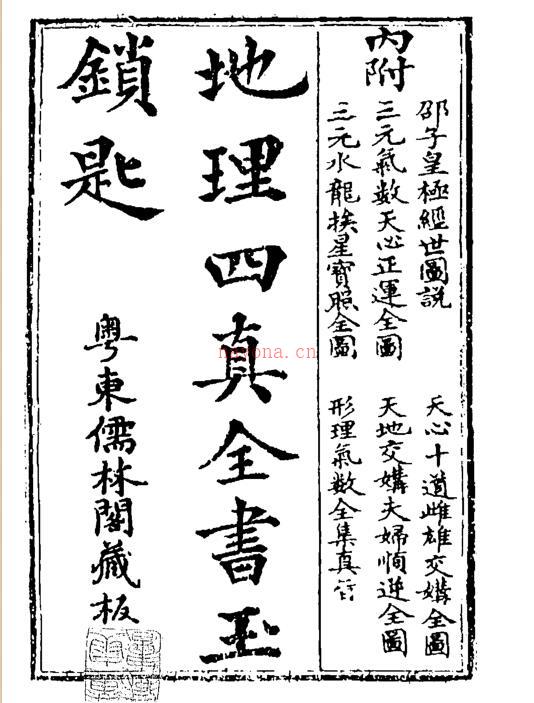 內附
邵子皇極經世圖説
三元氣数天心正運全圖
三元水龍挨星寶照全圖
天心十道雌雄交媾全圖
天地交媾夫婦順逆全圖
形理氣数全集真
地理四真全書玉
鎖匙
粤東儒林閣藏板
nayona.cn